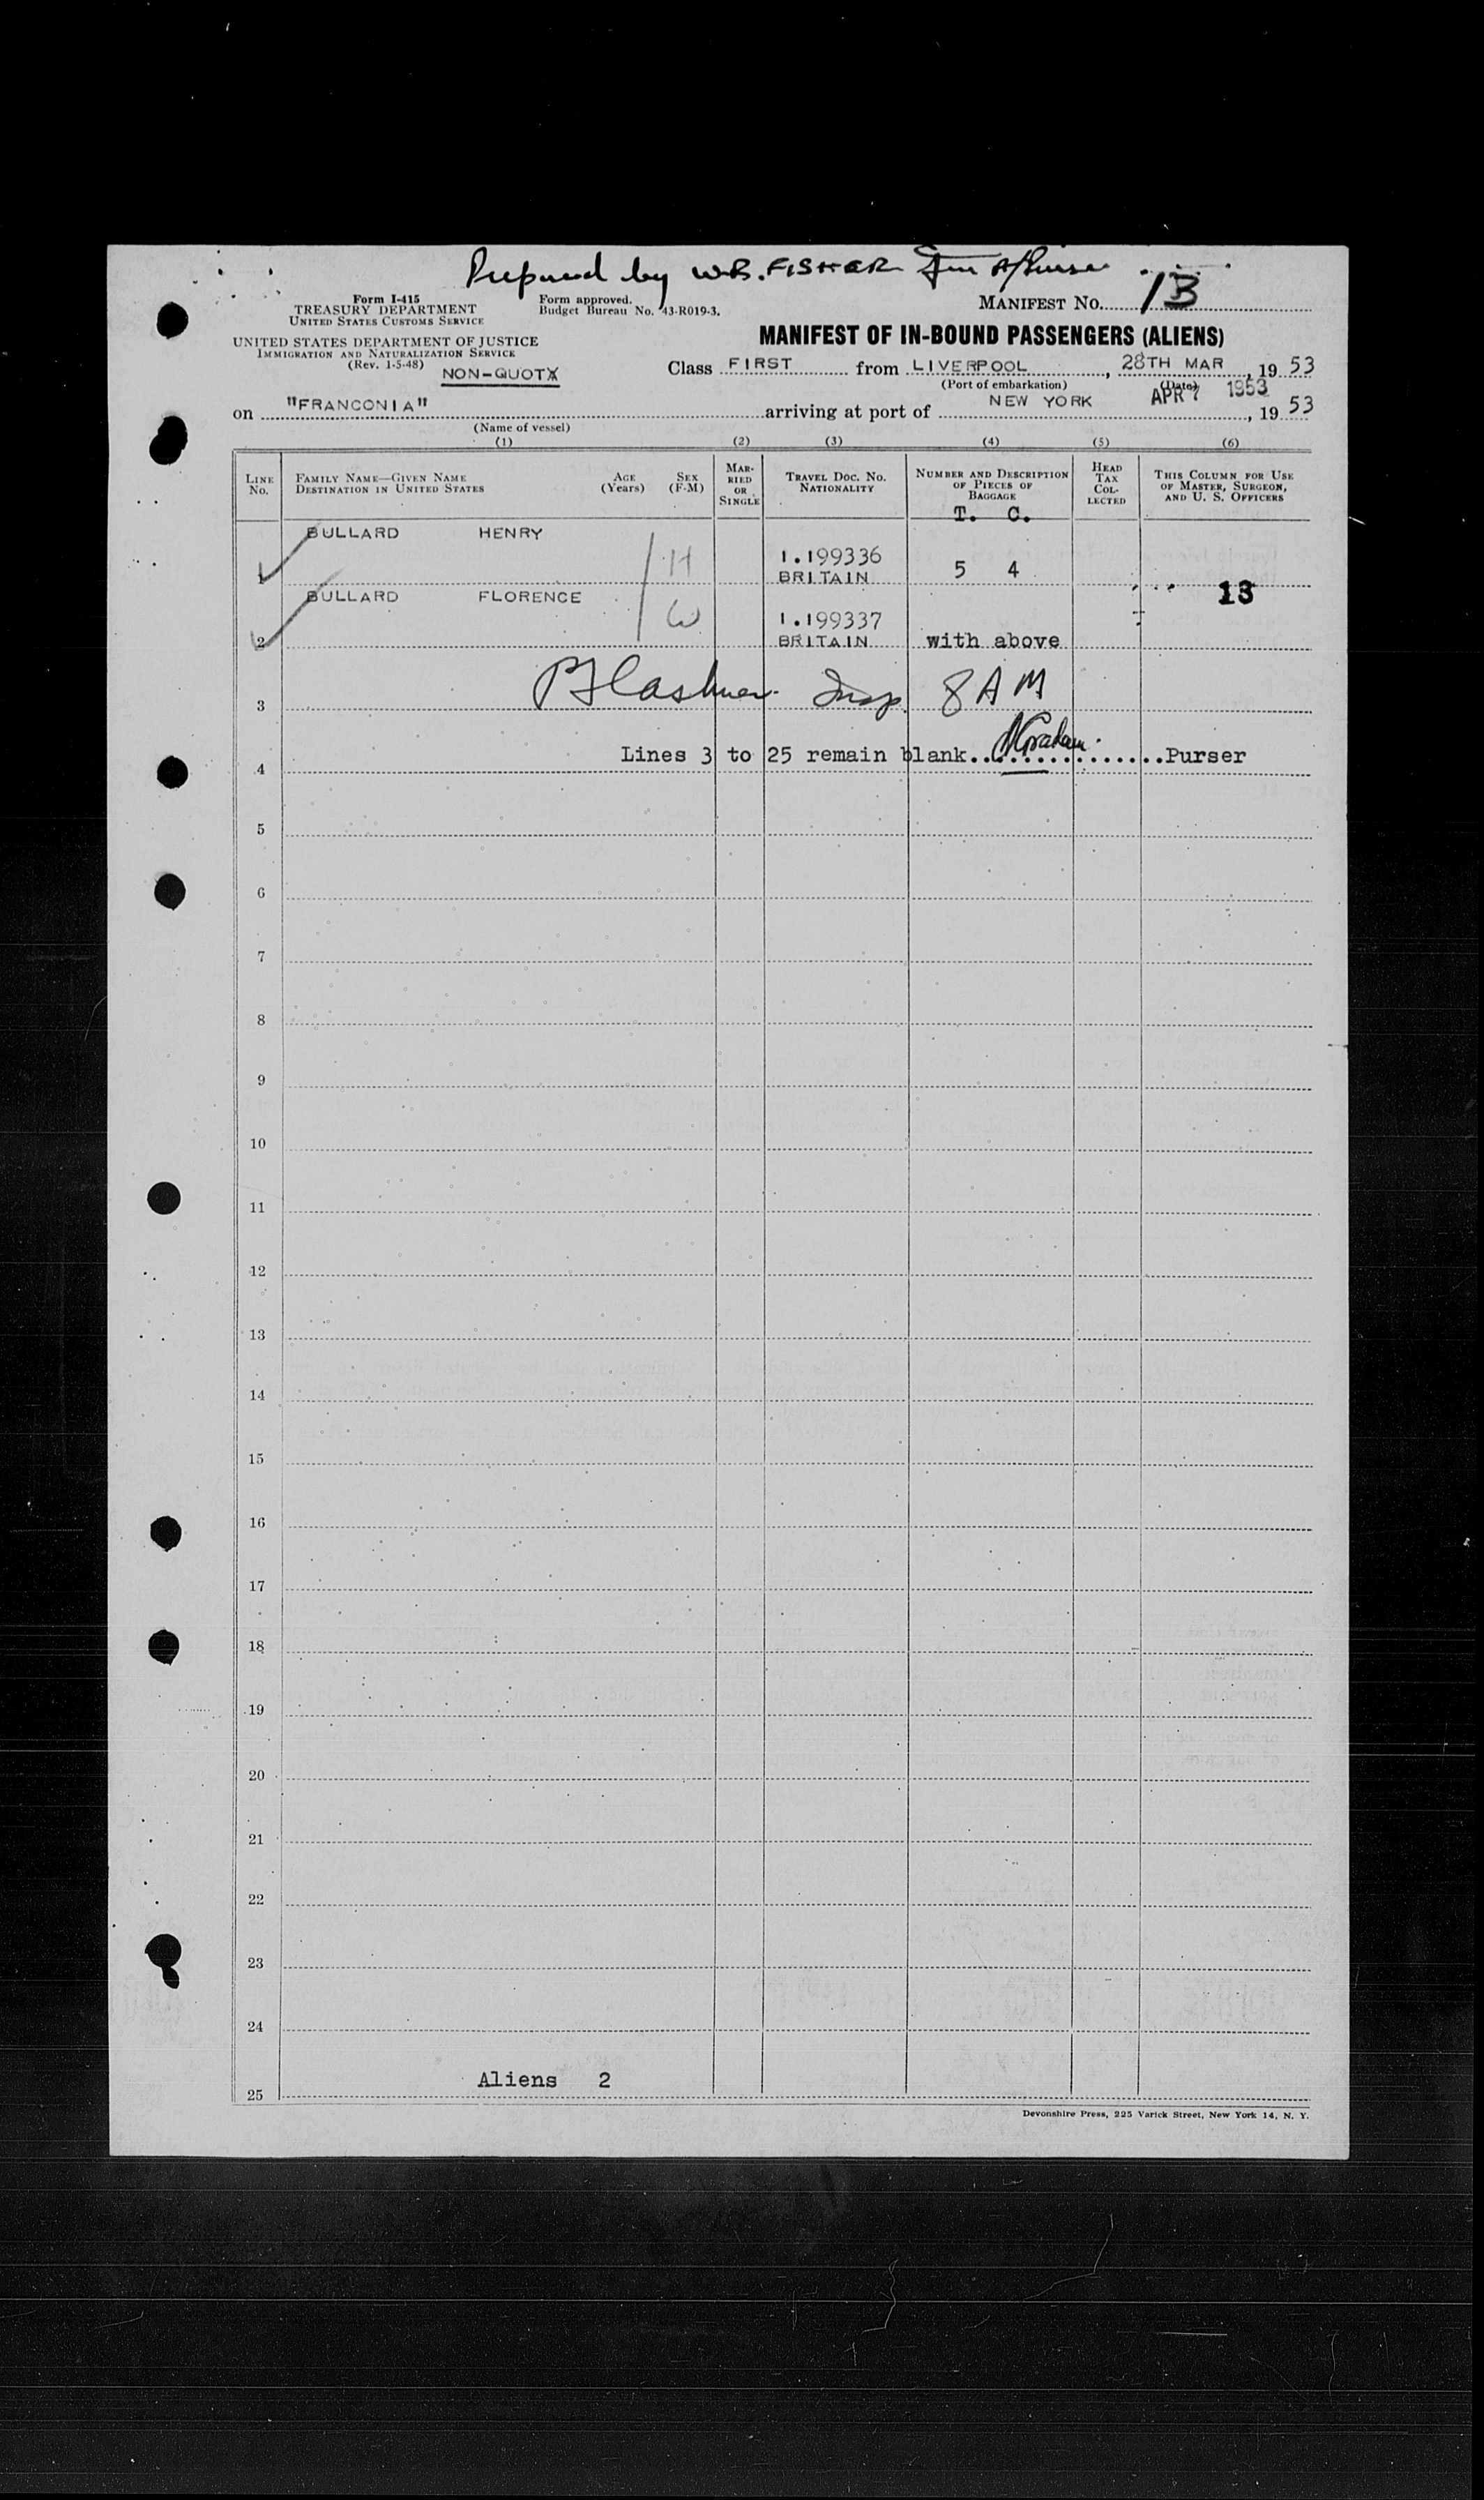 Prepared by W.B. FISHER
Form I-415
TREASURY DEPARTMENT
UNITED STATES CUSTOMS SERVICE
Form approved.
Budget Bureau No. 43-R019-3.
MANIFEST No. 13
UNITED STATES DEPARTMENT OF JUSTICE
IMMIGRATION AND NATURALIZATION SERVICE
(Rev. 1-5-48)
NON-QUOTX
MANIFEST OF IN-BOUND PASSENGERS (ALIENS)
Class FIRST from LIVERPOOL, 28TH MAR, 19 53
(Port of embarkation) (Date)
APR 7 1953
on "FRANCONIA" arriving at port of NEW YORK, 19 53
(Name of vessel)
(1) (2) (3) (4) (5) (6)
LINE No. FAMILY NAME—GIVEN NAME DESTINATION IN UNITED STATES AGE (Years) SEX (F-M) MARRIED OR SINGLE TRAVEL DOC. No. NATIONALITY NUMBER AND DESCRIPTION OF PIECES OF BAGGAGE HEAD TAX COLLECTED THIS COLUMN FOR USE OF MASTER, SURGEON, AND U. S. OFFICERS
T. C.
BULLARD HENRY
H 1.199336
1 BRITAIN 5 4
BULLARD FLORENCE 13
W 1.199337
2 BRITAIN with above
3 Insp. 8 AM
Lines 3 to 25 remain blank................Purser
4
5
6
7
8
9
10
11
12
13
14
15
16
17
18
19
20
21
22
23
24
Aliens 2
25
Devonshire Press, 225 Varick Street, New York 14, N. Y.